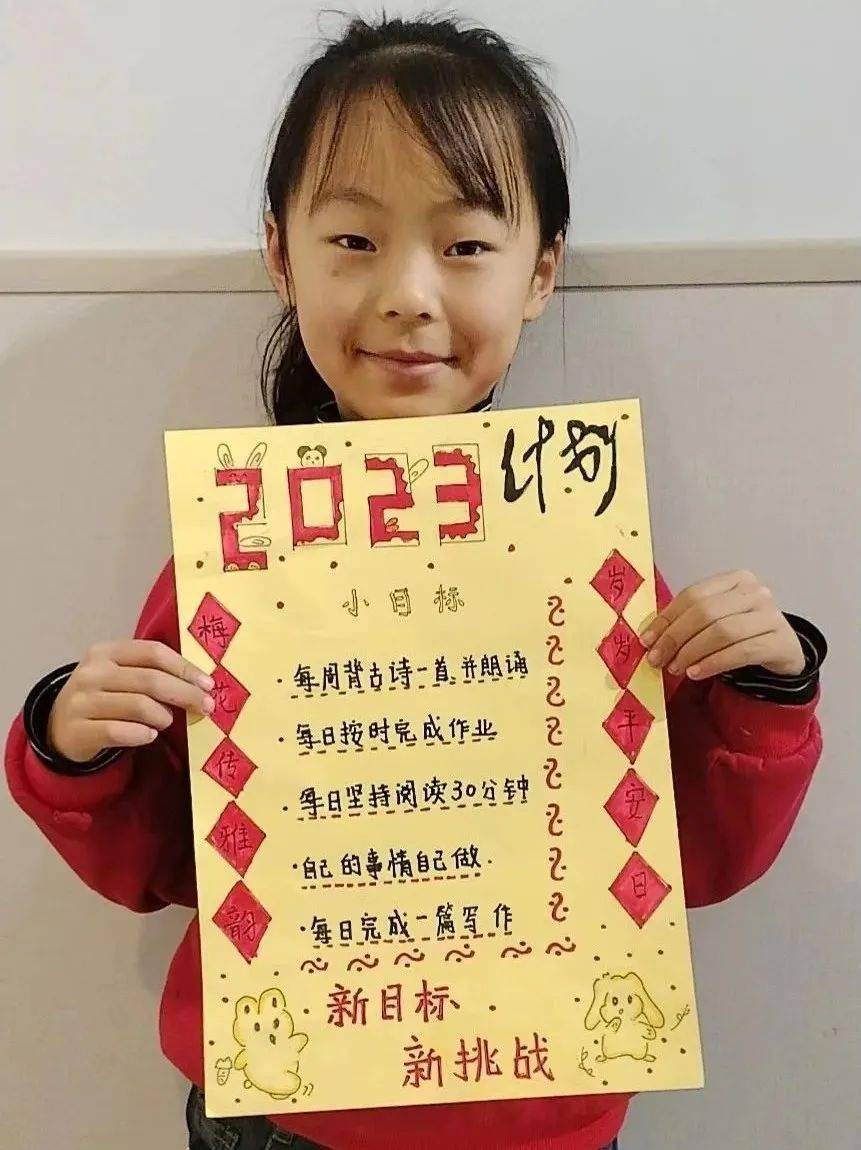 2023 计划
小目标
梅花传雅韵
岁岁平安日
·每周背古诗一首,并朗诵
·每日按时完成作业
·每日坚持阅读30分钟
·自己的事情自己做.
·每日完成一篇写作
新目标
新挑战